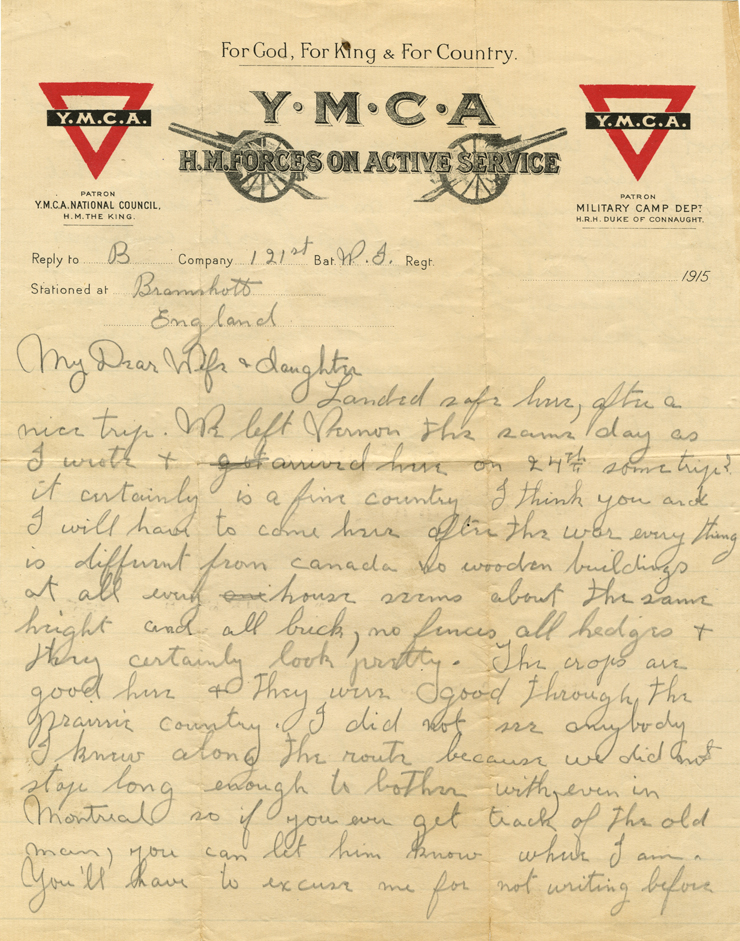 For God, For King & For Country.
Y.M.C.A.
Y·M·C·A
Y.M.C.A.
H.M. FORCES ON ACTIVE SERVICE
PATRON
Y.M.C.A. NATIONAL COUNCIL,
H.M. THE KING.
PATRON
MILITARY CAMP DEPT
H.R.H. DUKE OF CONNAUGHT.
Reply to B Company 121st Bat. W.I. Regt.
1915
Stationed at Bramshott
England
My Dear Wife & daughter
Landed safe here, after a
nice trip. We left Vernon the same day as
I wrote & got arrived here on 24th some trip?
it certainly is a fine country I think you and
I will have to come here after the war every thing
is diffurnt from canada no wooden buildings
at all every one house seems about the same
height and all brick, no fences, all hedges &
they certainly look pretty. The crops are
good here & they were good through the
prairie country. I did not see anybody
I knew along the route because we did not
stop long enough to bother with, even in
Montreal so if you ever get track of the old
man, you can let him know where I am.
You'll have to excuse me for not writing before